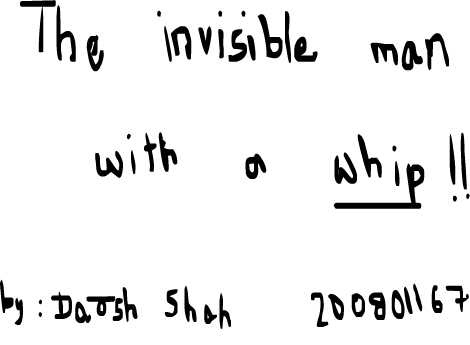 The invisible man
with a whip!!
by: Darsh Shah 200801167